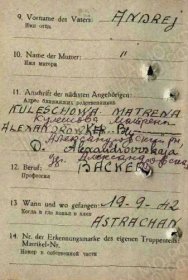 9. Vorname des Vaters: ANDREJ
Имя отца
10. Name der Mutter: "
Имя матери
11. Anschrift der nächsten Angehörigen:
Адрес ближайших родственников
KULESCHOWA MATRENA
Кулешова Матрена
ALEXANDROWKA
Alexandrovskaja
12. Beruf: BÄCKER
Профессия
13. Wann und wo gefangen: 19-9-42
Когда и где взят в плен
ASTRACHAN
14. Nr. der Erkennungsmarke des eigenen Truppenteils:
Номер в собственной части